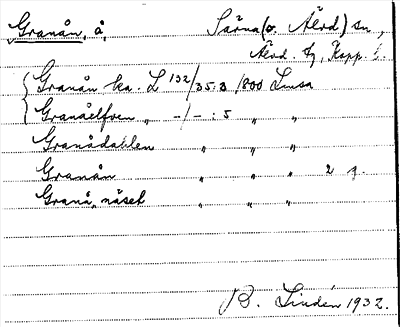 Granån, å, Särna (o. Älvd) sn,
Älvd. tg, Kopp. l.
Granån ka. L 132/35:3 1800 Lmsa
Granåelfven " -/- : 5 " "
Granådahlen " " "
Granån " " " 2 g.
Granå, näset " " "
B. Lindén 1932.